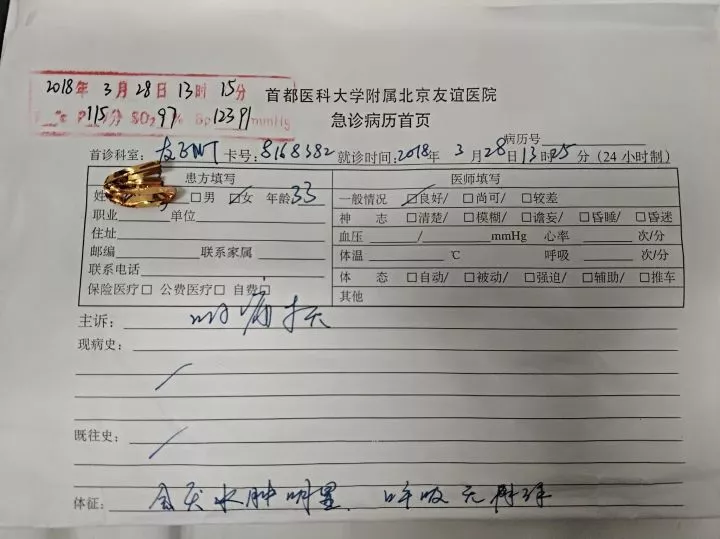 2018年 3月28日13时 15分
P115分 SO₂97% Bp 123/91mmHg
首都医科大学附属北京友谊医院
急诊病历首页
病历号
首诊科室: 卡号:8168382 就诊时间:2018年 3月28日13时25分(24小时制)
患方填写
姓 □男 ☑女 年龄33
职业 单位
住址
邮编 联系家属
联系电话
保险医疗□ 公费医疗□ 自费□
医师填写
一般情况 ☑良好/ □尚可/ □较差
神 志 □清楚/ □模糊/ □谵妄/ □昏睡/ □昏迷
血压 / mmHg 心率 次/分
体温 ℃ 呼吸 次/分
体 态 □自动/ □被动/ □强迫/ □辅助/ □推车
其他
主诉: 咽痛1天
现病史: /
既往史: /
体征: 会厌水肿明显. 呼吸无